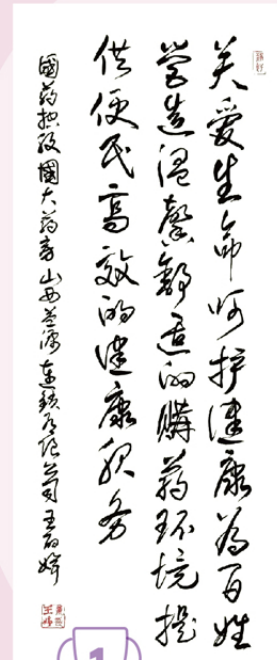 关爱生命呵护健康为百姓
营造温馨舒适的購药环境提
供便民高效的健康服务
國药控股國大药房山西益源连锁有限公司王百娇
1